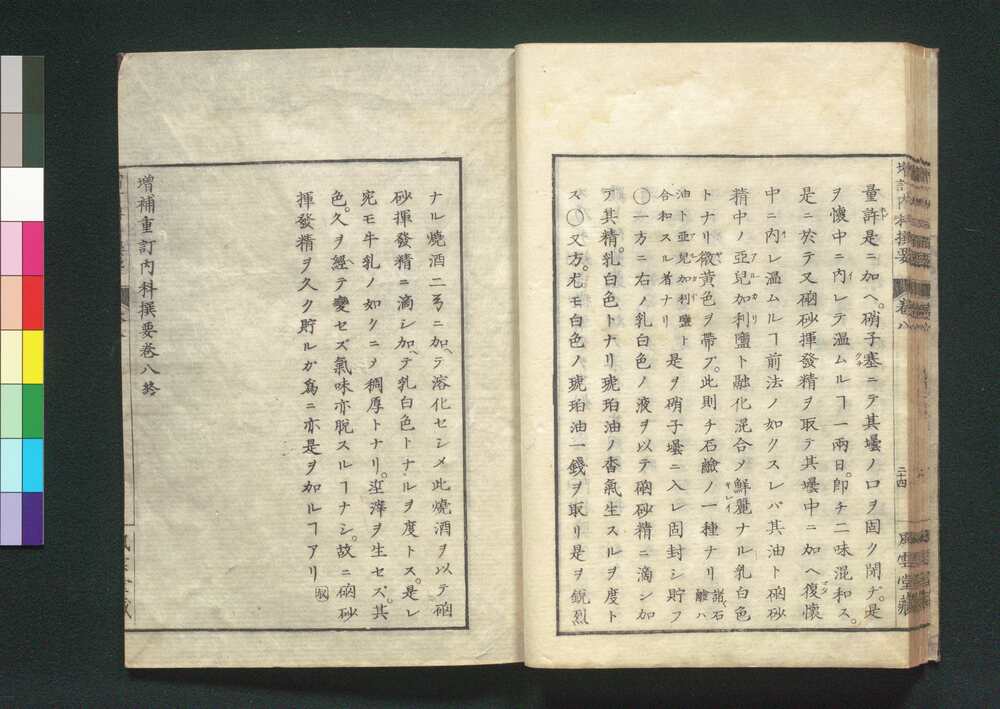 増訂内科撰要
卷八
二十四
風雲堂藏
量許是ニ加ヘ。硝子塞ニテ其壜ノ口ヲ固ク閉ヂ。是
ヲ懷中ニ內レテ温ムルヿ一兩日。卽チ二味混和ス。
是ニ於テ又硇砂揮發精ヲ取テ其壜中ニ加ヘ復懷
中ニ內レ温ムルヿ前法ノ如クスレバ其油ト硇砂
精中ノ亞兒加利鹽ト融化混合メ鮮麗ナル乳白色
トナリ微黄色ヲ帶ブ。此則チ石鹼ノ一種ナリ諸石鹼ハ
油ト亞兒加利鹽ト合和スル者ナリ是ヲ硝子壜ニ入レ固封シ貯フ
〇一方ニ右ノ乳白色ノ液ヲ以テ硇砂精ニ滴シ加
ヘ其精。乳白色トナリ琥珀油ノ香氣生スルヲ度ト
ス〇又方。尤モ白色ノ琥珀油一錢ヲ取リ是ヲ銳烈
ナル燒酒二弓ニ加ヘテ溶化セシメ此燒酒ヲ以テ硇
砂揮發精ニ滴シ加ヘテ乳白色トナルヲ度トス。是レ
宛モ牛乳ノ如クニヲ稠厚トナリ。滓ヲ生セズ。其
色。久ヲ經テ變セズ氣味亦脫スルヿナシ。故ニ硇砂
揮發精ヲ久ク貯ルガ爲ニ亦是ヲ加ルヿアリ
增補重訂內科撰要卷八終